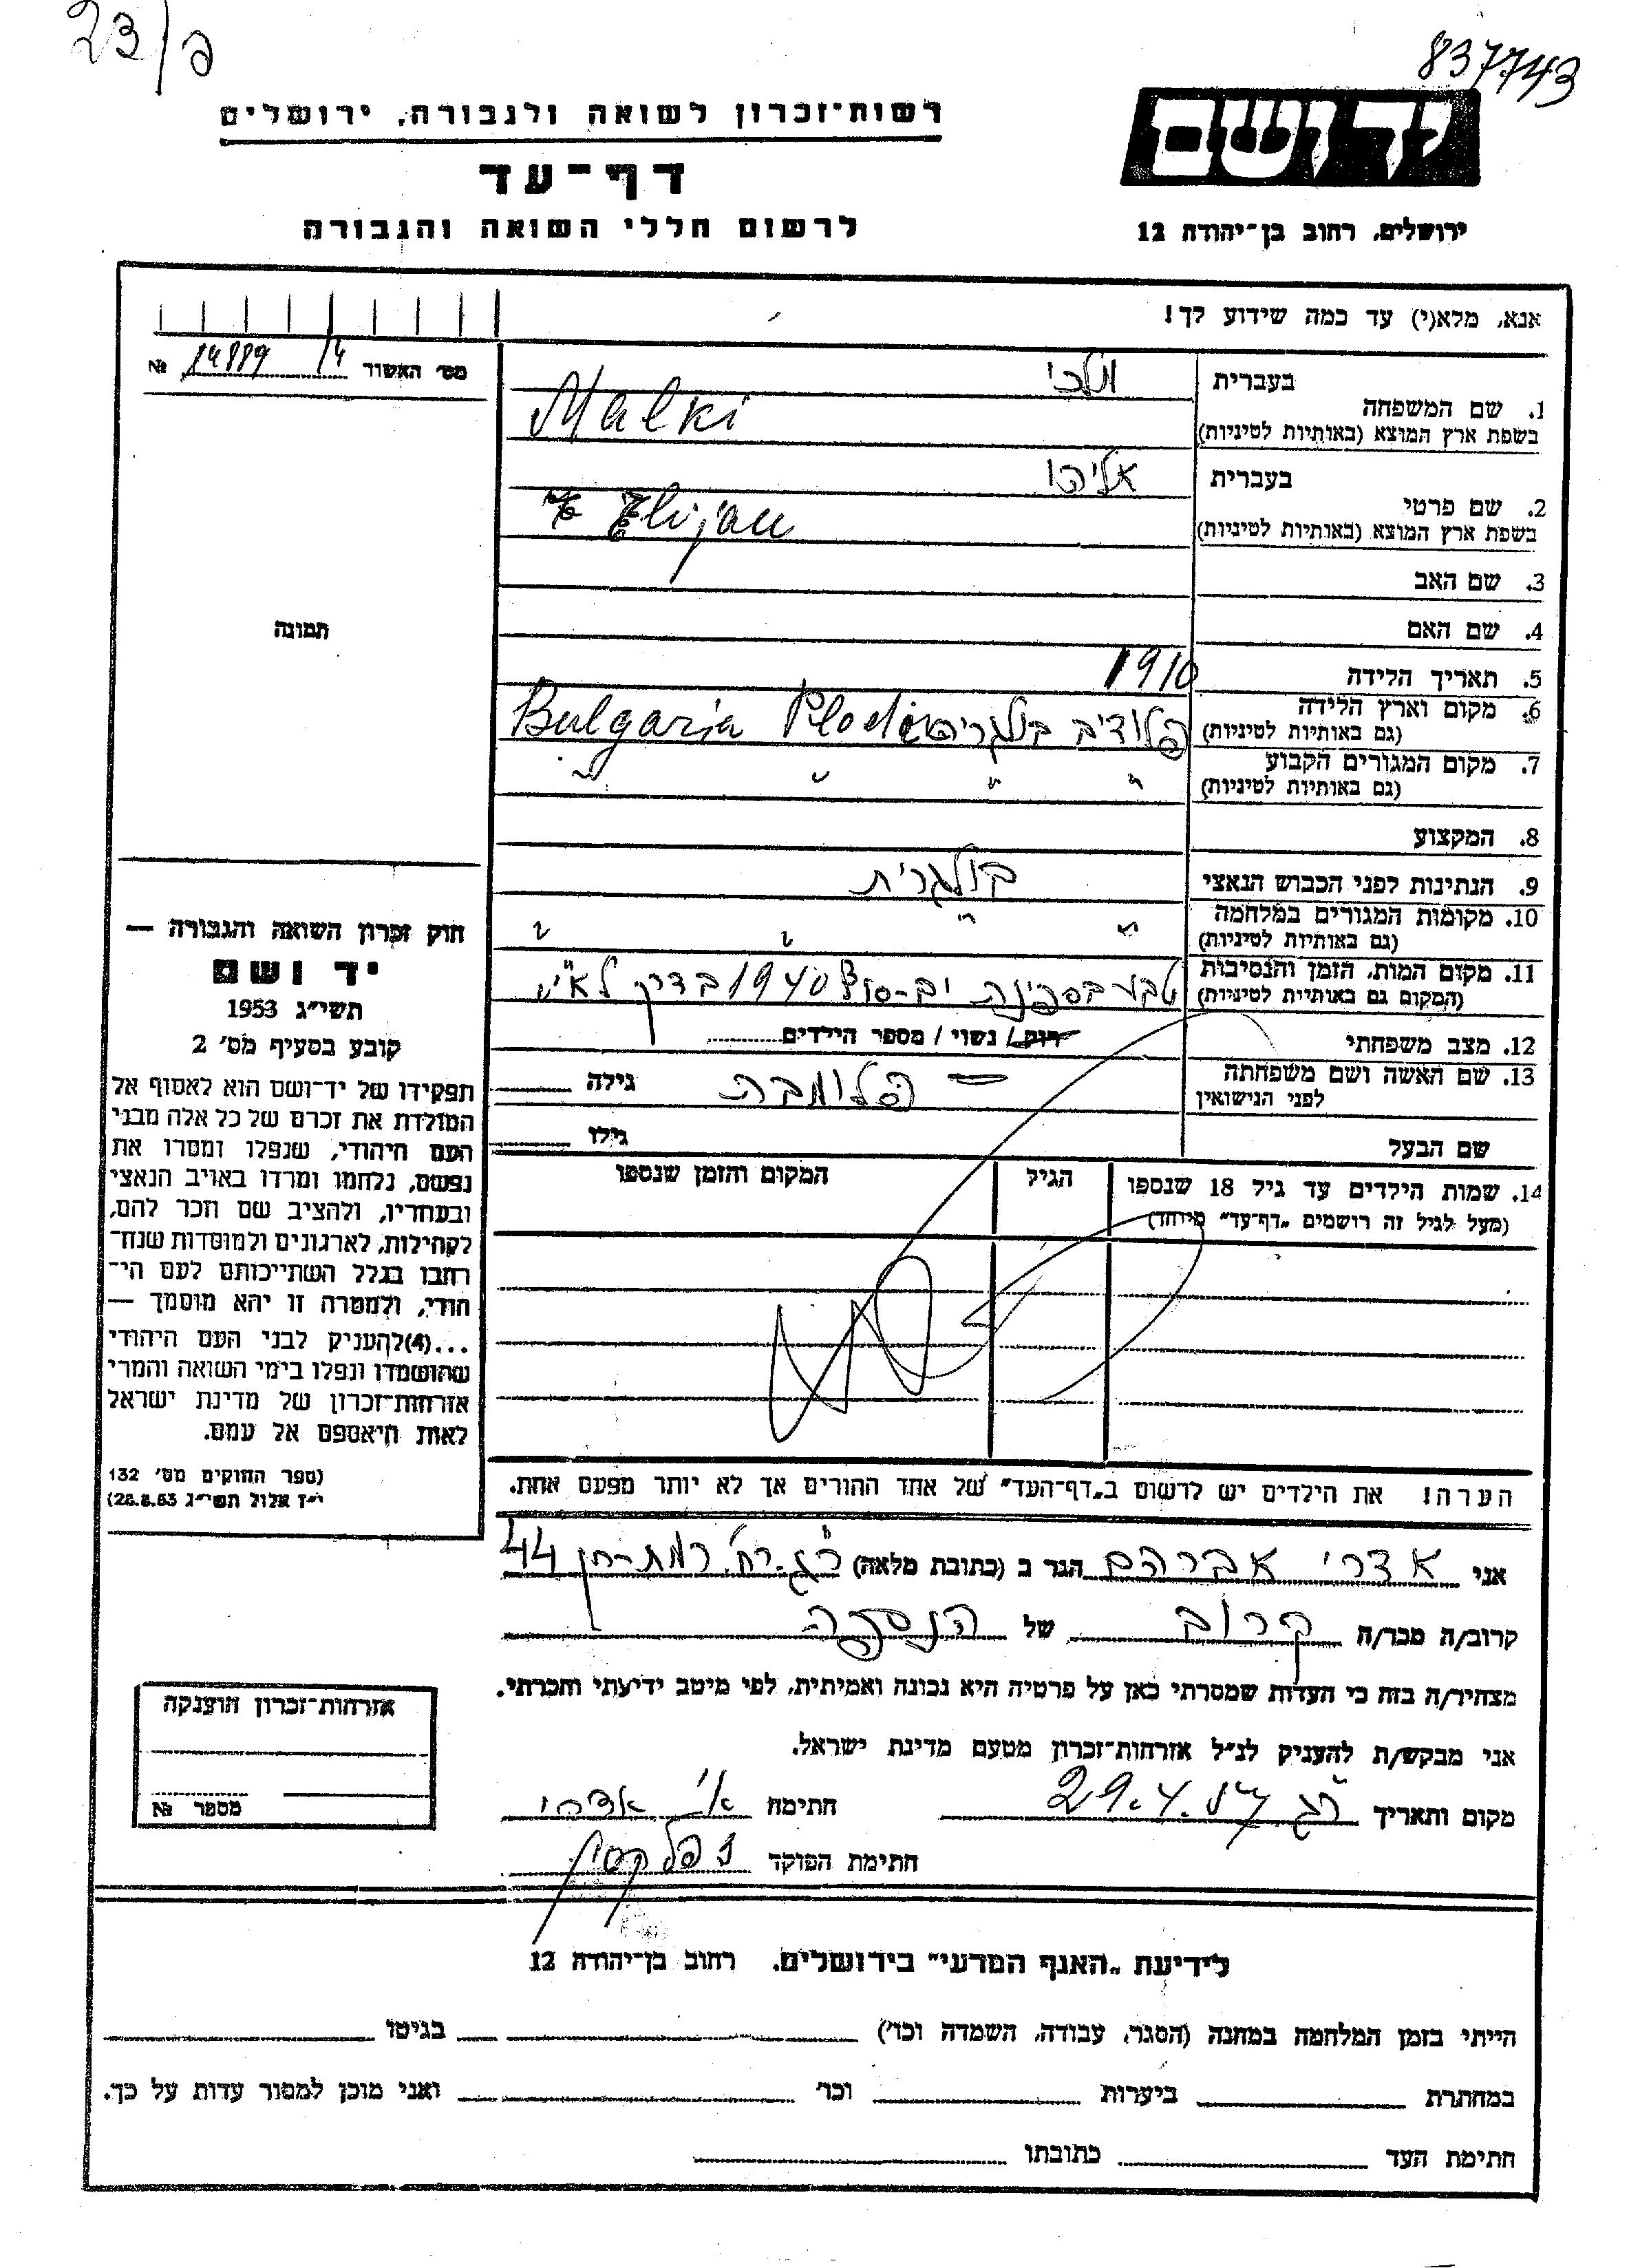 23/פ
837743
רשות־זכרון לשואה ולגבורה, ירושלים
דף־עד
לרשום חללי השואה והגבורה
יד ושם
ירושלים, רחוב בן־יהודה 12
אנא, מלא(י) עד כמה שידוע לך!
מס׳ האשור 14889 14 №
תמונה
בעברית מלכי
1. שם המשפחה
בשפת ארץ המוצא (באותיות לטיניות) Malki
בעברית אליהו
2. שם פרטי
בשפת ארץ המוצא (באותיות לטיניות) Elijau
3. שם האב
4. שם האם
5. תאריך הלידה 1910
6. מקום וארץ הלידה
(גם באותיות לטיניות) פלודיב בולגריה Bulgaria
7. מקום המגורים הקבוע
(גם באותיות לטיניות) " " " "
8. המקצוע
9. הנתינות לפני הכבוש הנאצי בולגרית
10. מקומות המגורים במלחמה
(גם באותיות לטיניות) " " " "
11. מקום המות, הזמן והנסיבות
(המקום גם באותיית לטיניות) טבע בספינת ים-סוף 1940 בדרך לא"י
12. מצב משפחתי רווק/ נשוי / מספר הילדים
13. שם האשה ושם משפחתה
לפני הנישואין גילה
שם הבעל גילו
14. שמות הילדים עד גיל 18 שנספו הגיל המקום והזמן שנספו
(מעל לגיל זה רושמים „דף־עד" מיוחד)
הערה! את הילדים יש לרשום ב„דף־העד" של אחד ההורים אך לא יותר מפעם אחת.
חוק זכרון השואה והגבורה —
יד ושם
תשי״ג 1953
קובע בסעיף מס׳ 2
תפקידו של יד־ושם הוא לאסוף אל
המולדת את זכרם של כל אלה מבני
העם היהודי, שנפלו ומסרו את
נפשם, נלחמו ומרדו באויב הנאצי
ובעוזריו, ולהציב שם וזכר להם,
לקהילות, לארגונים ולמוסדות שנח־
רבו בגלל השתייכותם לעם הי־
הודי, ולמטרה זו יהא מוסמך —
...(4)להעניק לבני העם היהודי
שהושמדו ונפלו בימי השואה והמרי
אזרחות־זכרון של מדינת ישראל
לאות היאספם אל עמם.
(ספר החוקים מס׳ 132
י״ז אלול תשי״ג 28.8.53)
אני אדרי אברהם הגר ב (כתובת מלאה) ר"ג רח' רמת-חן 44
קרוב/ה מכר/ה קרוב של הנספה
מצהיר/ה בזה כי העדות שמסרתי כאן על פרטיה היא נכונה ואמיתית, לפי מיטב ידיעתי והכרתי.
אני מבקש/ת להעניק לנ״ל אזרחות־זכרון מטעם מדינת ישראל.
מקום ותאריך ר"ג 29.4.57 חתימה א' אדרי
חתימת הפוקד
אזרחות־זכרון הוענקה
מספר №
לידיעת „האגף המדעי" בירושלים. רחוב בן־יהודה 12
הייתי בזמן המלחמה במחנה (הסגר, עבודה, השמדה וכו׳) בגיטו
במחתרת ביערות וכו׳ ואני מוכן למסור עדות על כך.
חתימת העד כתובתו